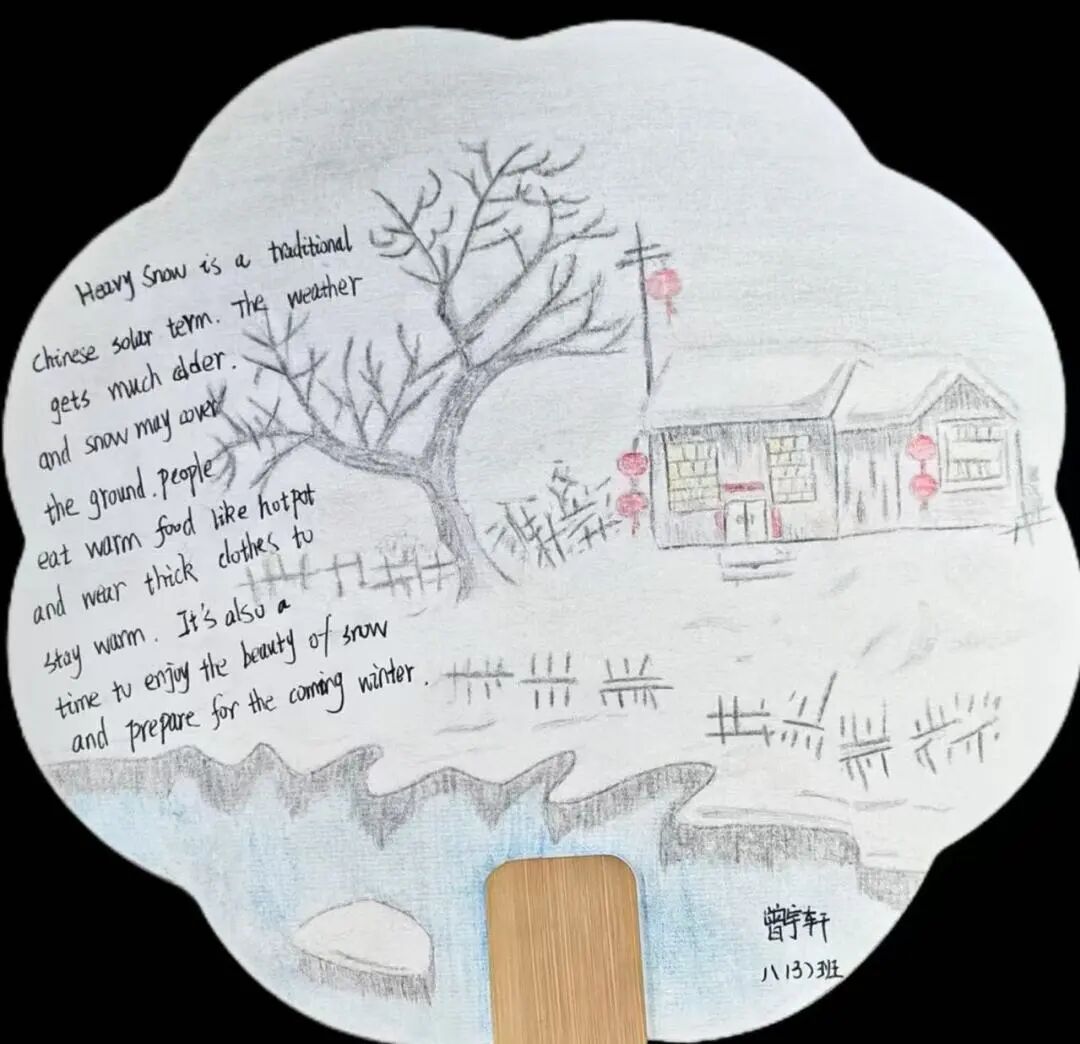 Heavy Snow is a traditional
Chinese solar term. The weather
gets much colder.
and snow may cover
the ground. people
eat warm food like hotpot
and wear thick clothes to
stay warm. It's also a
time to enjoy the beauty of snow
and prepare for the coming winter.
曾宇轩
八(3)班